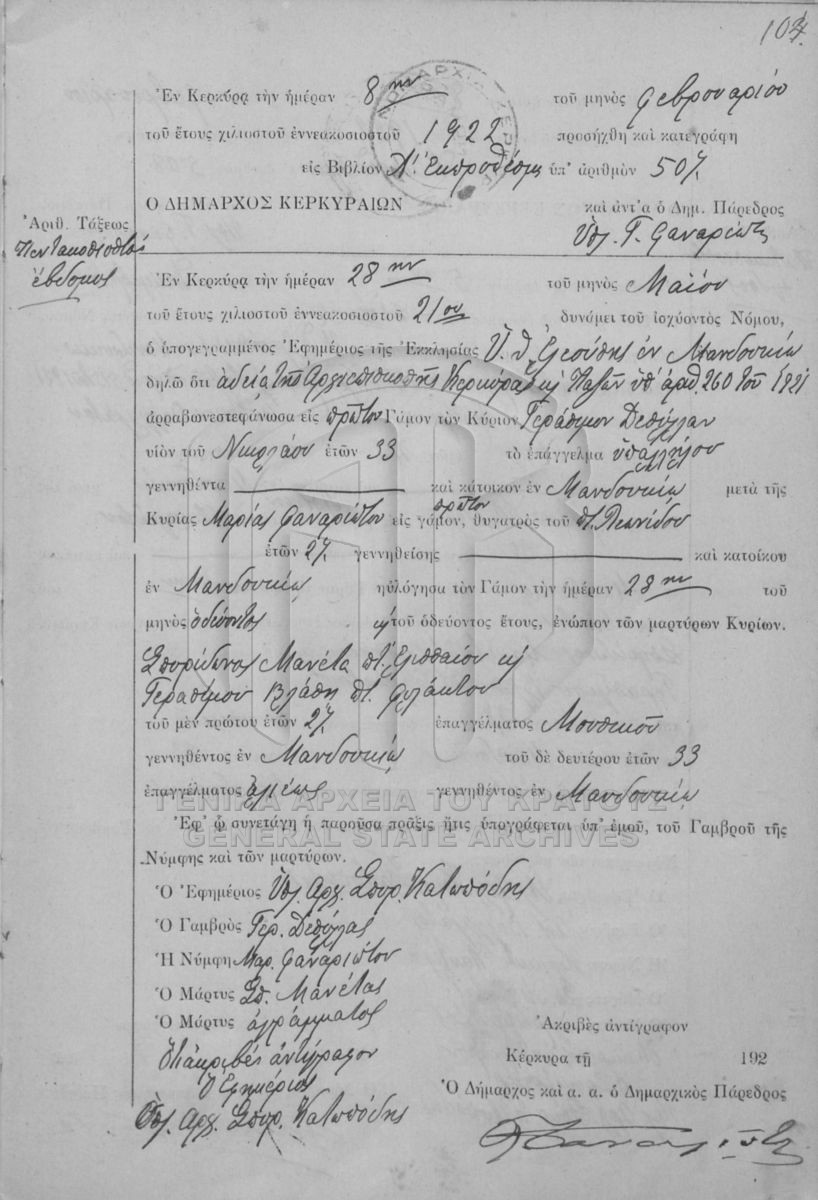 Ἐν Κερκύρᾳ τὴν ἡμέραν 8ην τοῦ μηνὸς Φεβρουαρίου
τοῦ ἔτους χιλιοστοῦ ἐννεακοσιοστοῦ 1922 προσήχθη καὶ κατεγράφη
εἰς Βιβλίον Λ' Ἐκπροθέσμ ὑπ' ἀριθμὸν 507.
Ο ΔΗΜΑΡΧΟΣ ΚΕΡΚΥΡΑΙΩΝ καὶ ἀντ'α ὁ Δημ. Πάρεδρος
Ὑπ. Γ. Φαναριώτη
Ἀριθ. Τάξεως
Πεντακοσιοστός
ἕβδομος
Ἐν Κερκύρᾳ τὴν ἡμέραν 28ην τοῦ μηνὸς Μαΐου
τοῦ ἔτους χιλιοστοῦ ἐννεακοσιοστοῦ 21ου δυνάμει τοῦ ἰσχύοντος Νόμου,
ὁ ὑπογεγραμμένος Ἐφημέριος τῆς Ἐκκλησίας Ὑ. Θ. Ἐλεούσης ἐν Μανδουκίῳ
δηλῶ ὅτι ἀδείᾳ τῆς Ἀρχιεπισκοπῆς Κερκύρας κ Παξῶν ὑπ' ἀριθ. 260 τοῦ 1921
ἀρραβωνεστεφάνωσα εἰς πρῶτον Γάμον τὸν Κύριον Γεράσιμον Δεσύλλαν
υἱὸν τοῦ Νικολάου ἐτῶν 33 τὸ ἐπάγγελμα ὑπαλλήλου
γεννηθέντα καὶ κάτοικον ἐν Μανδουκίῳ μετὰ τῆς
Κυρίας Μαρίας Φαναριώτου εἰς πρῶτον γάμον, θυγατρὸς τοῦ π. Λεωνίδου
ἐτῶν 27. γεννηθείσης καὶ κατοίκου
ἐν Μανδουκίῳ ηὐλόγησα τὸν Γάμον τὴν ἡμέραν 28ην τοῦ
μηνὸς ὁδεύοντος κ τοῦ ὁδεύοντος ἔτους, ἐνώπιον τῶν μαρτύρων Κυρίων.
Σπυρίδωνος Μανέτα π. κ
Γερασίμου Βλάση π.
τοῦ μὲν πρώτου ἐτῶν 27. ἐπαγγέλματος Μουσικοῦ
γεννηθέντος ἐν Μανδουκίῳ τοῦ δὲ δευτέρου ἐτῶν 33
ἐπαγγέλματος ἁλιέως γεννηθέντος ἐν Μανδουκίῳ
ΓΕΝΙΚΑ ΑΡΧΕΙΑ ΤΟΥ ΚΡΑΤΟΥΣ
Ἐφ' ᾧ συνετάγη ἡ παροῦσα πρᾶξις ἥτις ὑπογράφεται ὑπ' ἐμοῦ, τοῦ Γαμβροῦ τῆς
GENERAL STATE ARCHIVES
Νύμφης καὶ τῶν μαρτύρων.
Ὁ Ἐφημέριος Ὑπ. Ἀρχ. Σπυρ. Κατωπόδης
Ὁ Γαμβρὸς Γερ. Δεσύλλας
Ἡ Νύμφη Μαρ. Φαναριώτου
Ὁ Μάρτυς Σπ. Μανέτας
Ὁ Μάρτυς ἀγράμματος
Ἀκριβὲς ἀντίγραφον
ἀκριβὲς ἀντίγραφον
Κέρκυρα τῇ 192
Ὁ Ἐφημέριος
Ὁ Δήμαρχος καὶ α. α. ὁ Δημαρχικὸς Πάρεδρος
Ὑπ. Ἀρχ. Σπυρ. Κατωπόδης